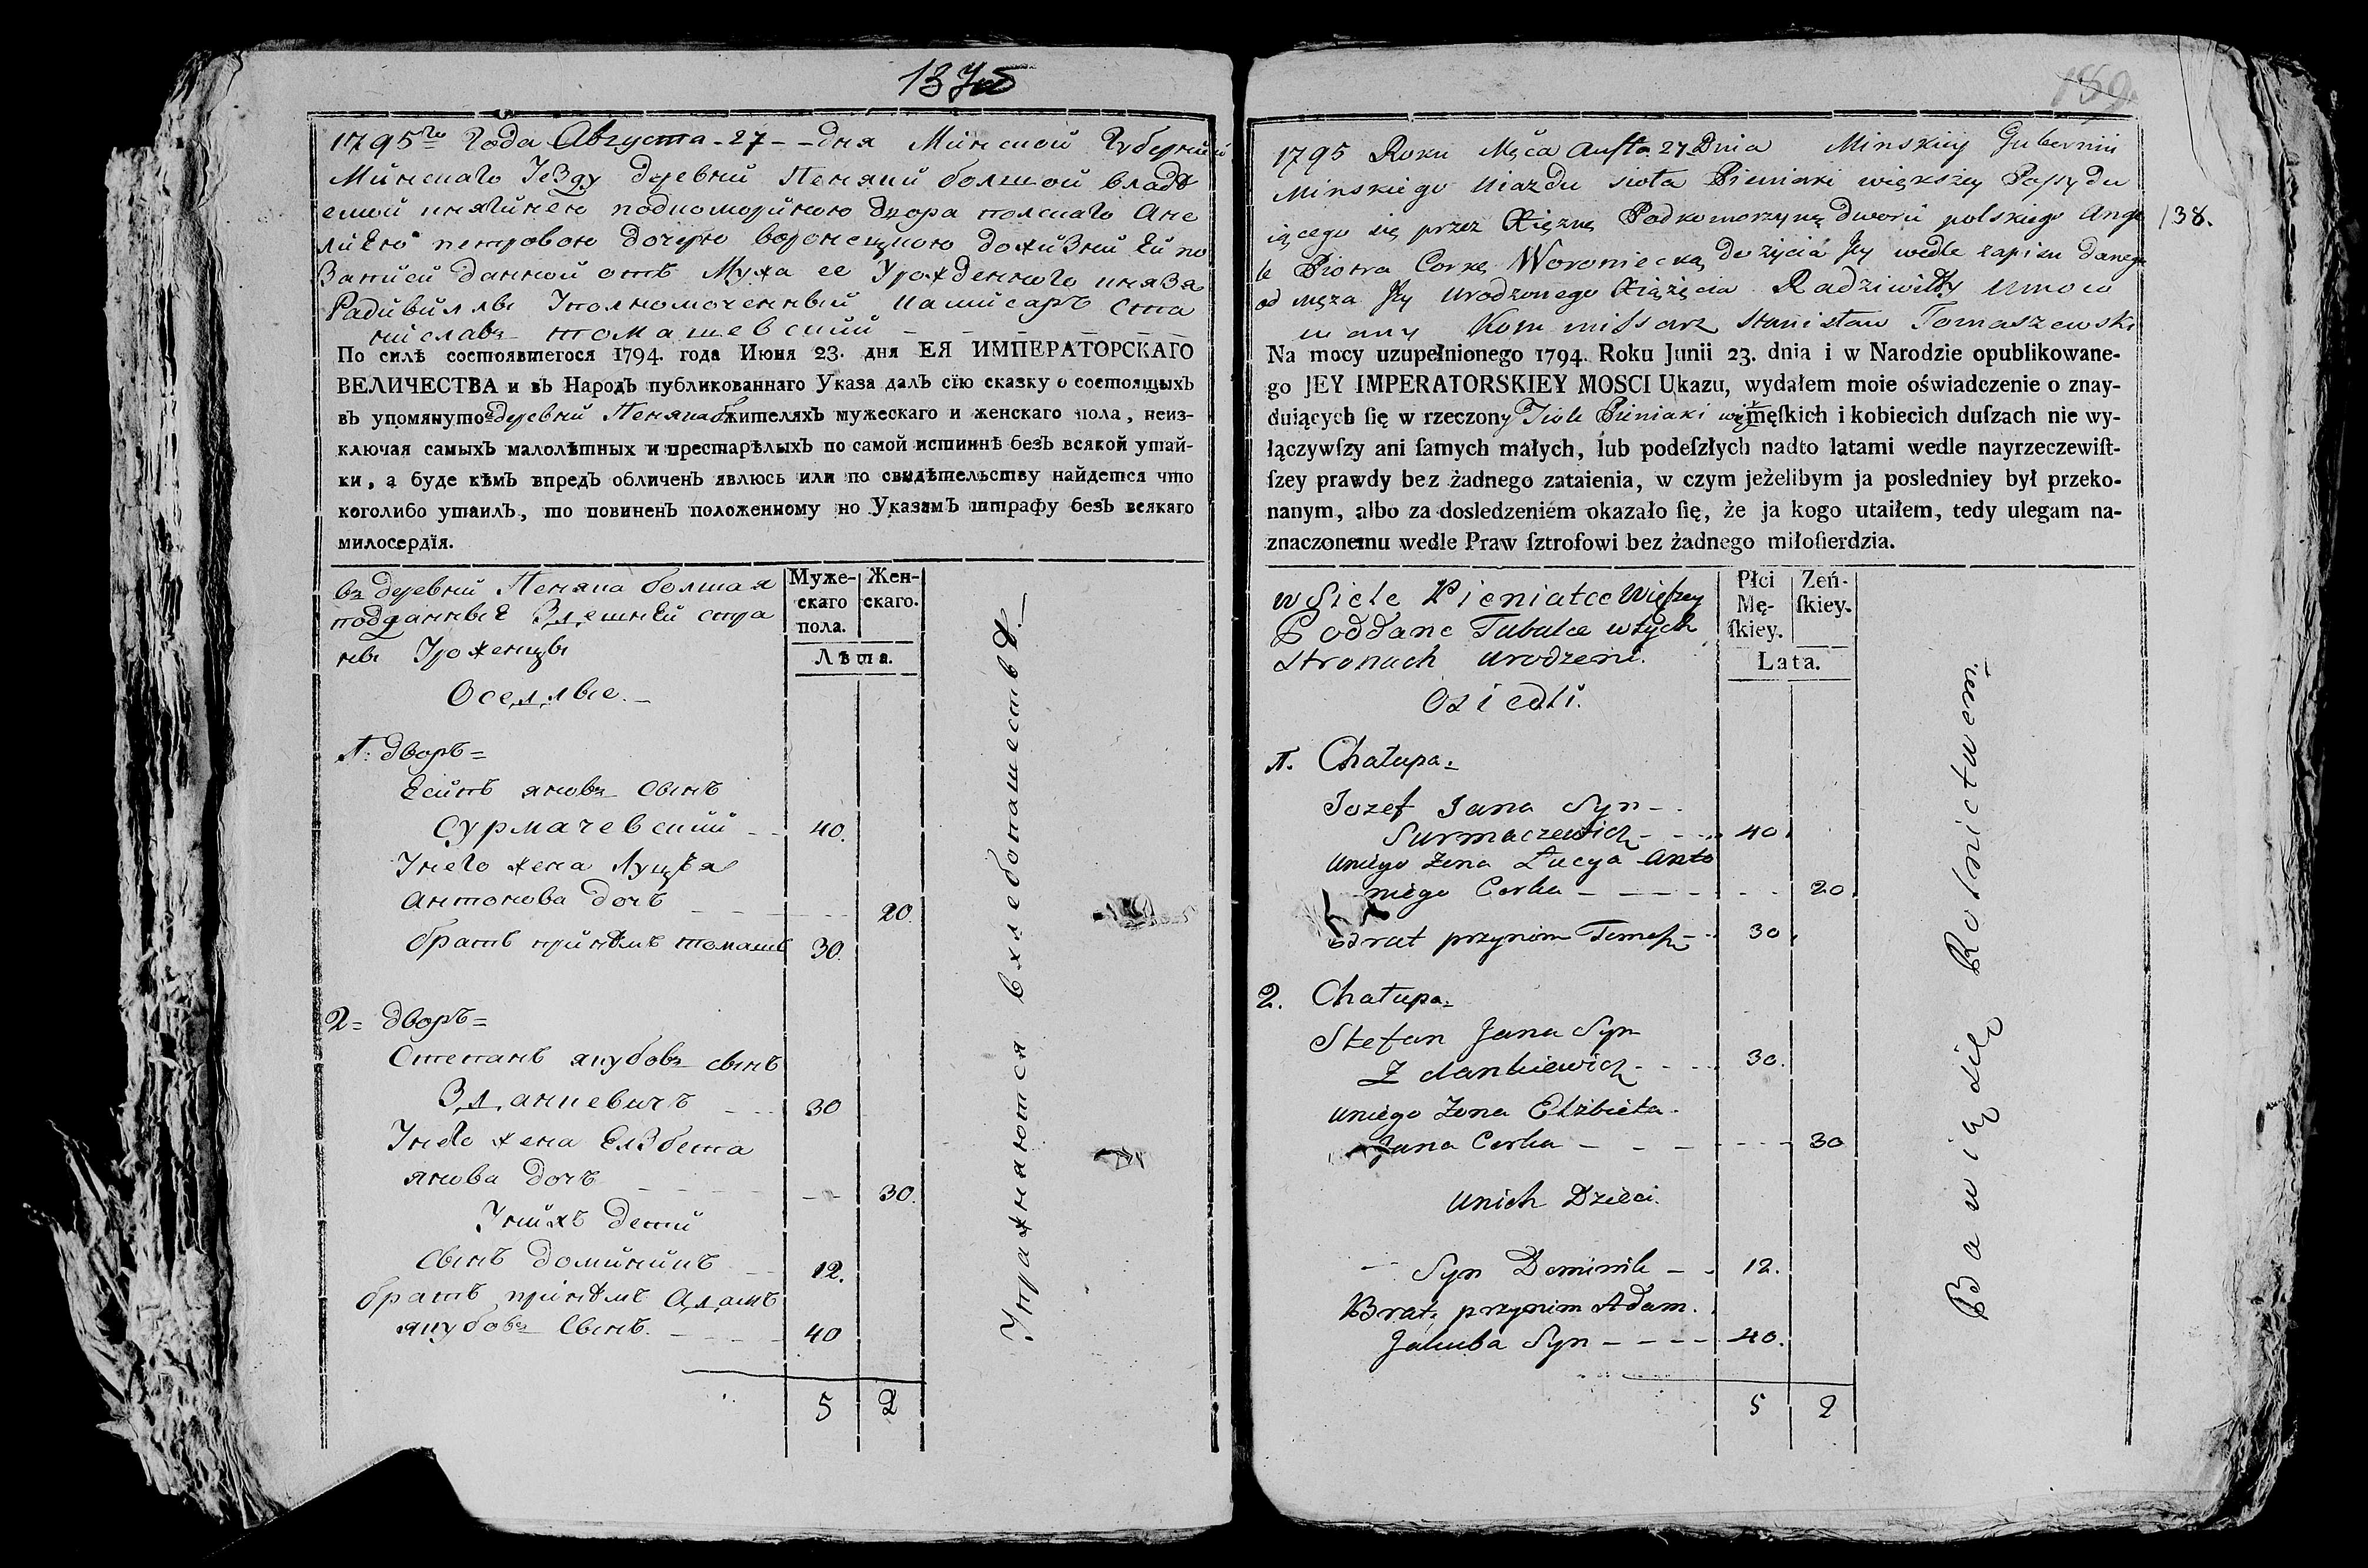 1795го Года Августа - 27 - - дня Минской Губерний
Минскаго Уезду деревни Пеняки болшой владѣ
емой княгинею подкомориною двора полскаго Анѣ
лиею петровою дочерю воронецкою дожизни Ей по
Записи данной отъ Мужа ее Урожденного князя
Радивиллы Уполномоченный камисаръ Ста
ниславъ томашевский
По силѣ состоявшегося 1794. года Июня 23. дня ЕЯ ИМПЕРАТОРСКАГО
ВЕЛИЧЕСТВА и въ Народъ публикованнаго Указа далъ сїю сказку о состоящыхъ
въ упомянуто деревни Пеняка б жителяхъ мужескаго и женскаго пола, неиз-
ключая самыхъ малолѣтных и престарѣлыхъ по самой истиннѣ безъ всякой утай-
ки, а буде кѣмъ впредъ обличенъ явлюсь или по свидѣтельству найдется что
коголибо утаилъ, то повиненъ положенному по Указамъ штрафу безъ всякаго
милосердїя.
въ деревни Пеняка болшая
подданные Здешней стра
ны Уроженцы
Муже-
скаго
пола.
Жен-
скаго.
Лѣта.
Оседлые.
1. дворъ=
Есипъ яновъ сынъ
Сурмачевский - - 40.
Унего жена Луцѣя
антонова дочъ 20.
братъ приемъ томашъ 30.
2= дворъ=
Степанъ якубовъ сынъ
Зданкевичъ 30
Унего жена Елзбета
янова дочъ 30.
Унихъ дети
Сынъ доминикъ 12.
братъ приемъ Адамъ
якубовъ Сынъ. 40
5 2
Упражняются вхлебопашествѣ.
138.
1795 Roku Męca Austa. 27 Dnia Minskiey Gubernii
Minskiego Uiazdu sioła Pieniaki większey Possydu
iącego się przez Xiężnę Podkomorzynę dworu polskiego Ange
le Piotra Corkę Woroniecką do życia Jey wedle zapisu danego
od męża Jey urodzonego Xiążęcia Radziwiłły Umoco
wany Kommissarz Stanisław Tomaszewski
Na mocy uzupełnionego 1794. Roku Junii 23. dnia i w Narodzie opublikowane-
go JEY IMPERATORSKIEY MOSCI Ukazu, wydałem moie oświadczenie o znay-
duiących ſię w rzeczony Siole Pieniaki wię męſkich i kobiecich duſzach nie wy-
łączywſzy ani ſamych małych, lub podeſzłych nadto latami wedle nayrzeczewiſt-
ſzey prawdy bez żadnego zataienia, w czym jeżelibym ja posledniey był przeko-
nanym, albo za dosledzeniém okazało ſię, że ja kogo utaiłem, tedy ulegam na-
znaczonemu wedle Praw ſztrofowi bez żadnego miłoſierdzia.
w Siele Pieniatce Więſzey
Poddane Tutulce wtych
Stronach urodzeni.
Płci
Mę-
ſkiey.
Zeń-
ſkiey.
Lata.
Osiedli.
1. Chałupa.
Jozef Jana Syn
Surmaczewicz 40.
Uniego Zona Łucya Anto
niego Corka 20.
Brat przynim Tomaſz 30.
2. Chałupa.
Stefan Jana Syn
Zdankiewicz 30.
Uniego Zona Elżbieta
Jana Corka 30
Unich Dzieci.
Syn Dominik 12.
Brat przynim Adam.
Jakuba Syn 40.
5 2
Bawią się Rolnictwem.